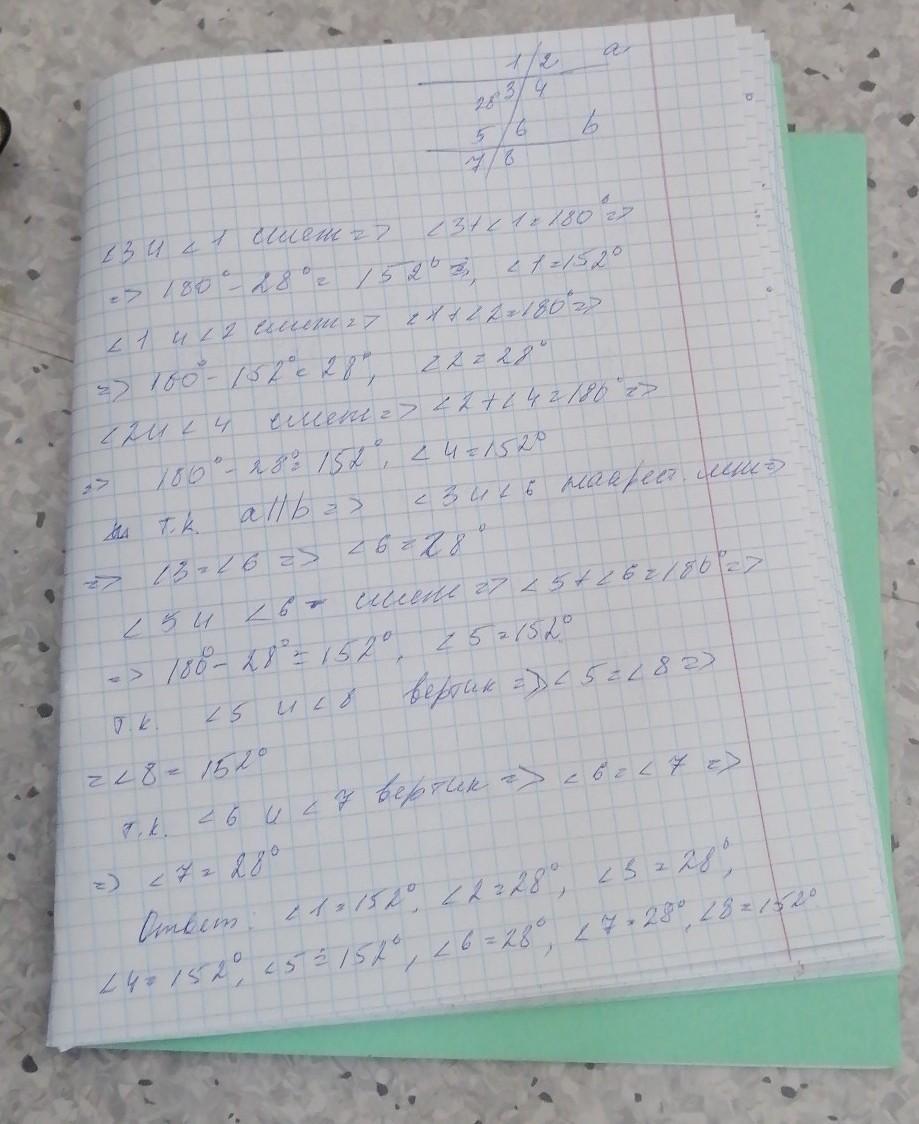 1 2 a
28 3 4
5 6 b
7 8
∠3 и ∠1 смеж => ∠3+∠1=180° =>
=> 180° - 28° = 152°, ∠1=152°
∠1 и ∠2 смеж => ∠1+∠2=180° =>
=> 180° - 152° = 28°, ∠2=28°
∠2 и ∠4 смеж => ∠2+∠4=180° =>
=> 180° - 28° = 152°, ∠4=152°
т.к. a||b => ∠3 и ∠6
=> ∠3=∠6 => ∠6=28°
∠5 и ∠6 - смеж => ∠5+∠6=180° =>
=> 180° - 28° = 152°, ∠5=152°
т.к. ∠5 и ∠8 вертик => ∠5=∠8 =>
=∠8=152°
т.к. ∠6 и ∠7 вертик => ∠6=∠7 =>
=> ∠7=28°
Ответ: ∠1=152°, ∠2=28°, ∠3=28°,
∠4=152°, ∠5=152°, ∠6=28°, ∠7=28°, ∠8=152°